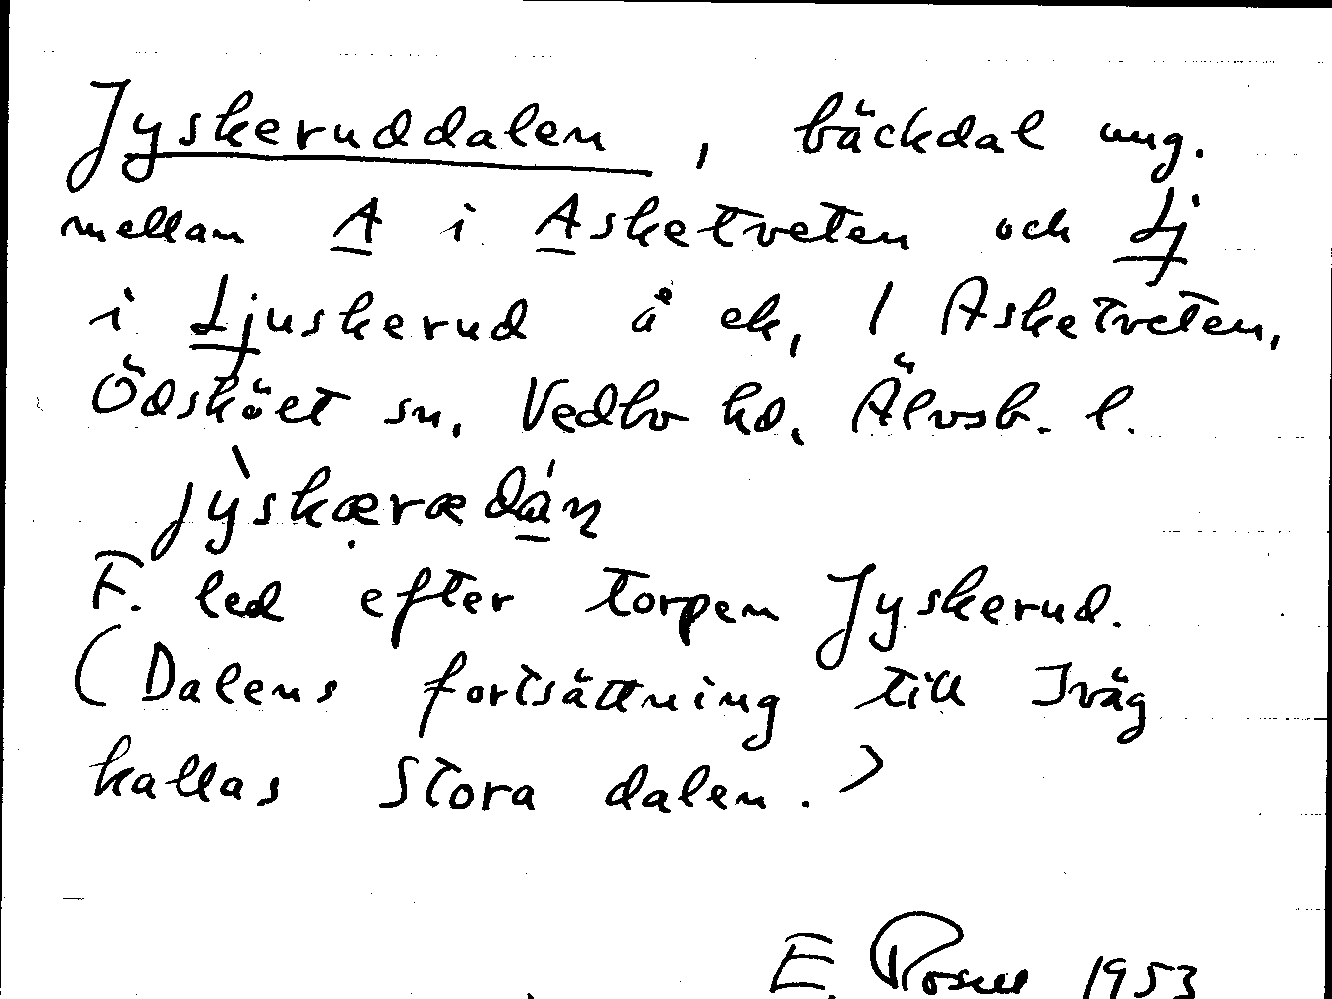 Jyskeruddalen, bäckdal ung.
mellan A i Asketveten och Lj
i Ljuskerud å ek, 1 Asketveten,
Ödskölt sn, Vedbo hd, Älvsb. l.
jỳskærædán
F. led efter torpen Jyskerud.
(Dalens fortsättning till Iväg
kallas Stora dalen.)
E. 1953